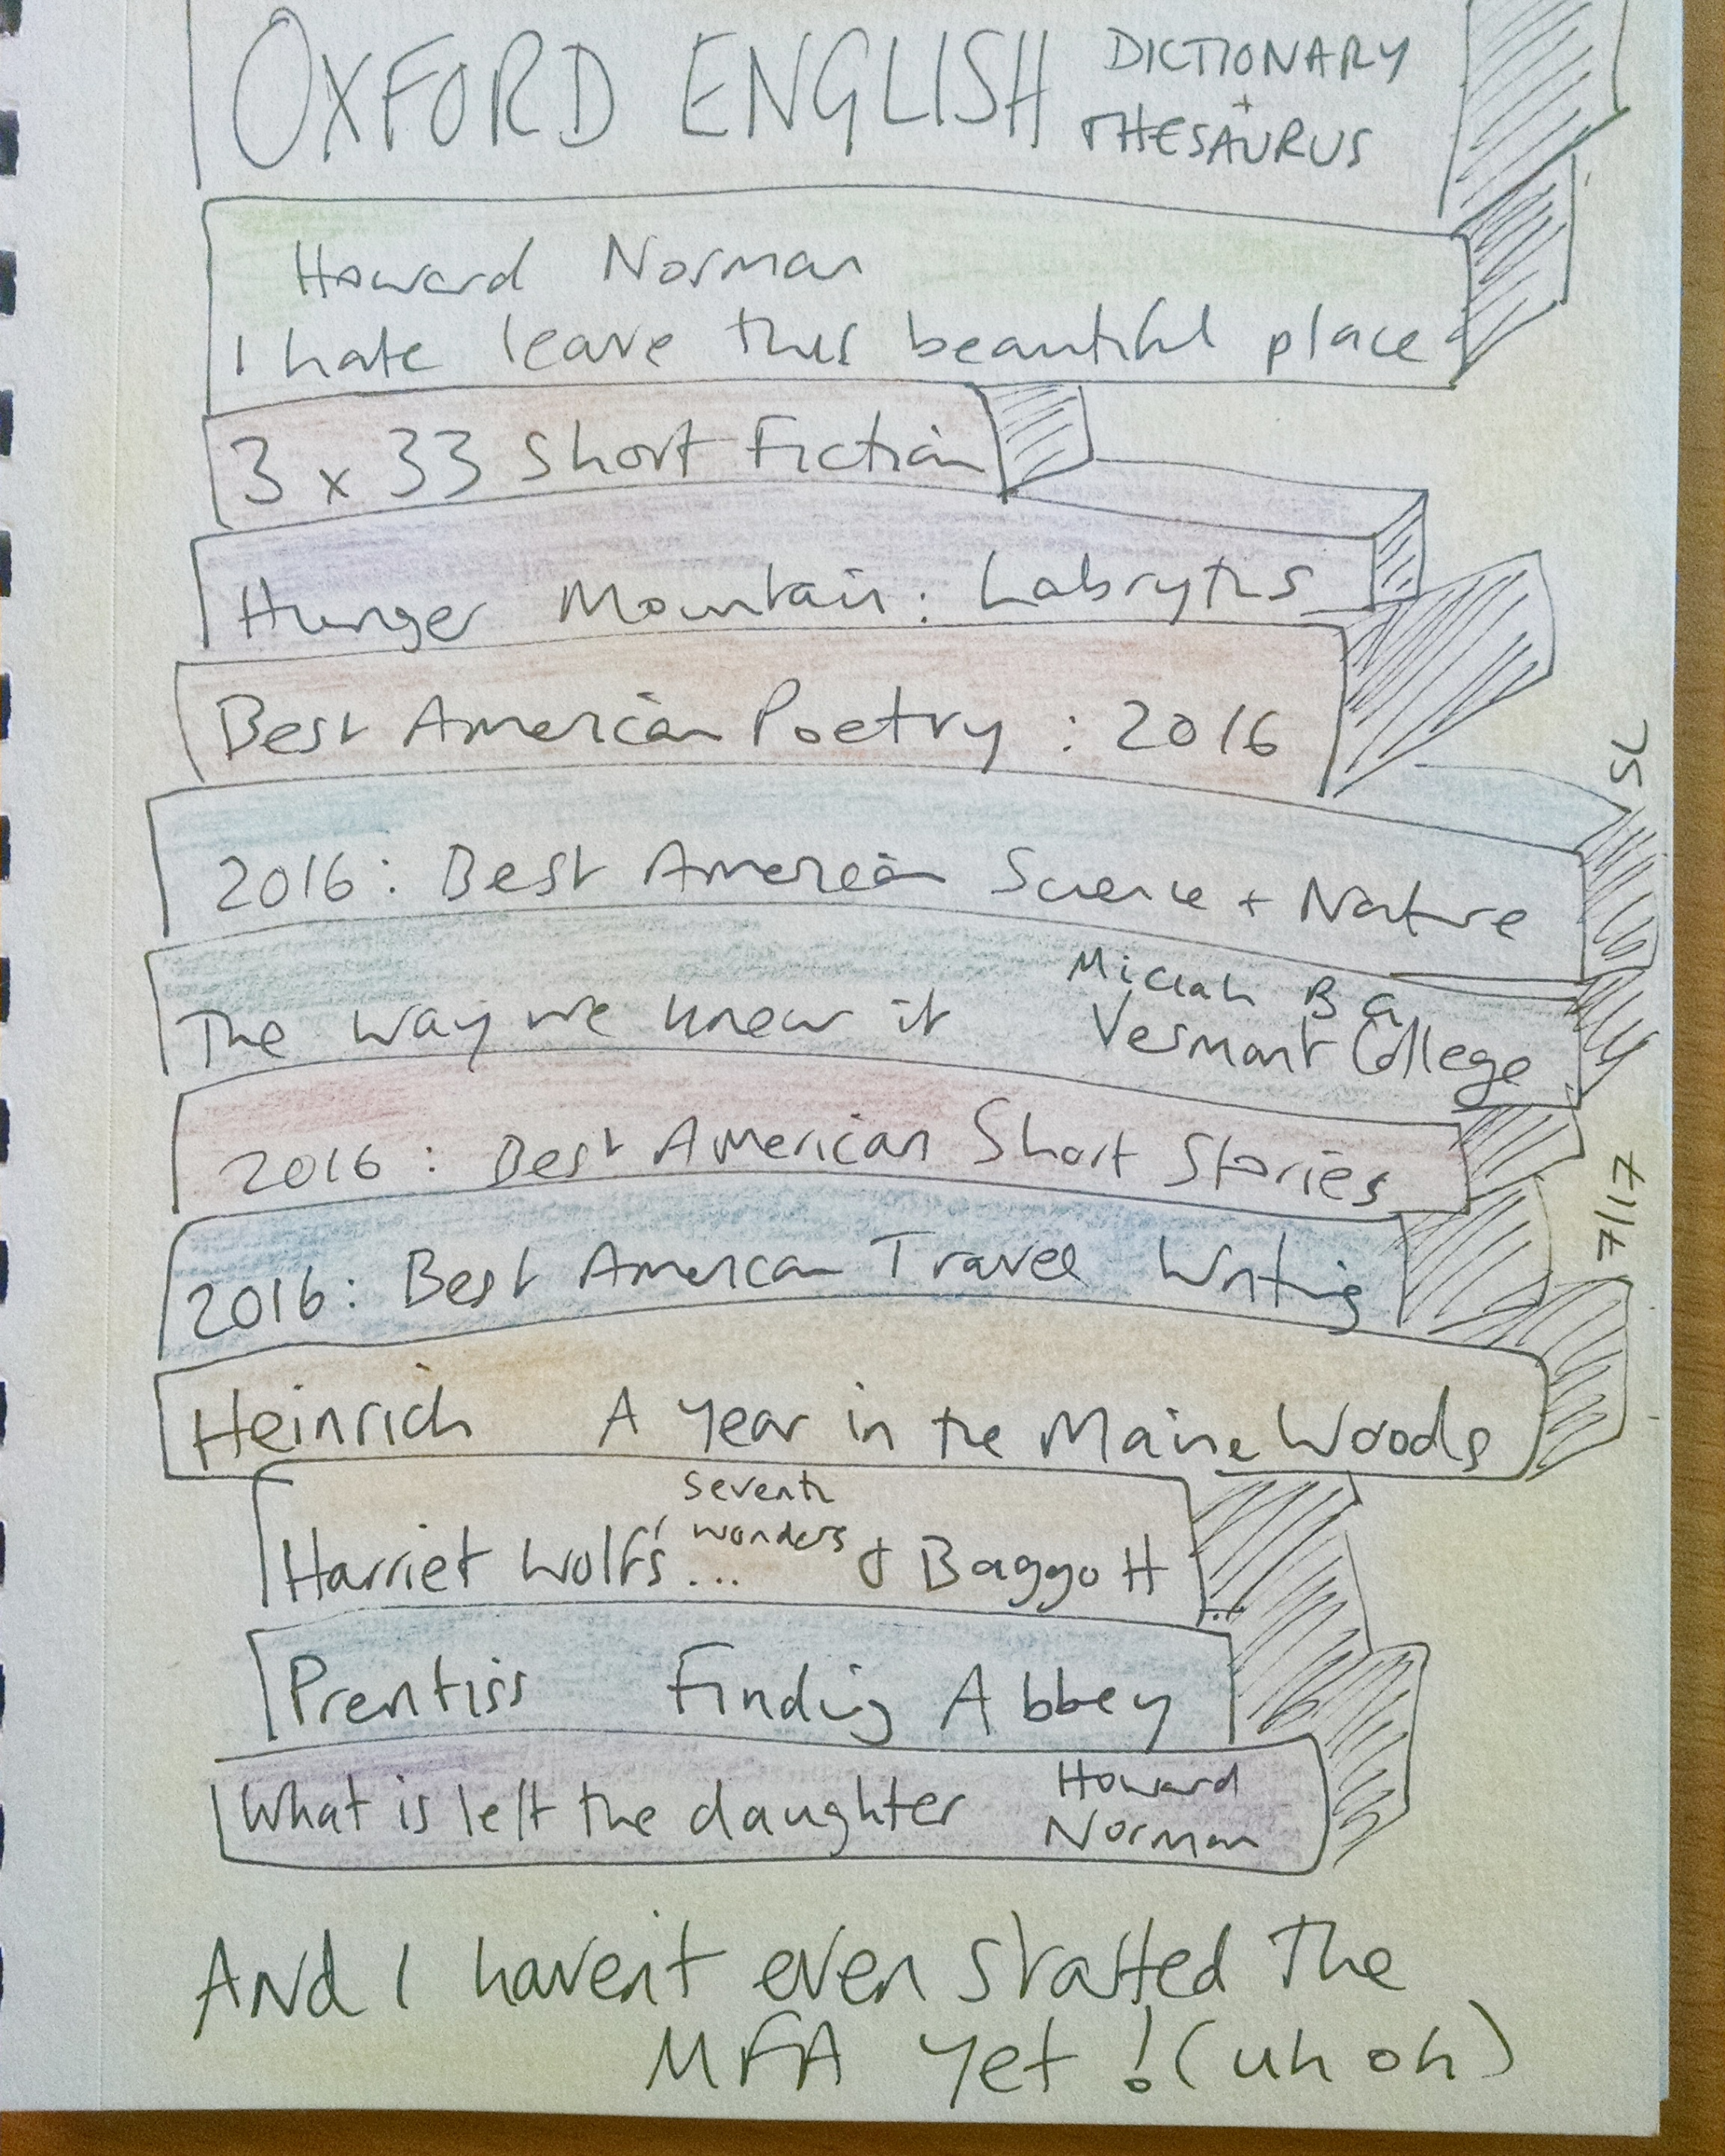 OXFORD ENGLISH DICTIONARY
+
THESAURUS
Howard Norman
I hate leave this beautiful place
3 x 33 Short Fiction
Hunger Mountain: Labryths
Best American Poetry : 2016
SL
2016: Best American Science + Nature
The way we knew it
B G
Vermont College
2016 : Best American Short Stories
7/17
2016: Best American Travel Writing
Heinrich A Year in the Maine Woods
Seventh
wonders
Harriet Wolf's ... Baggott
Prentiss Finding Abbey
What is left the daughter
Howard
Norman
And I haven't even started the
MFA yet! (uh oh)